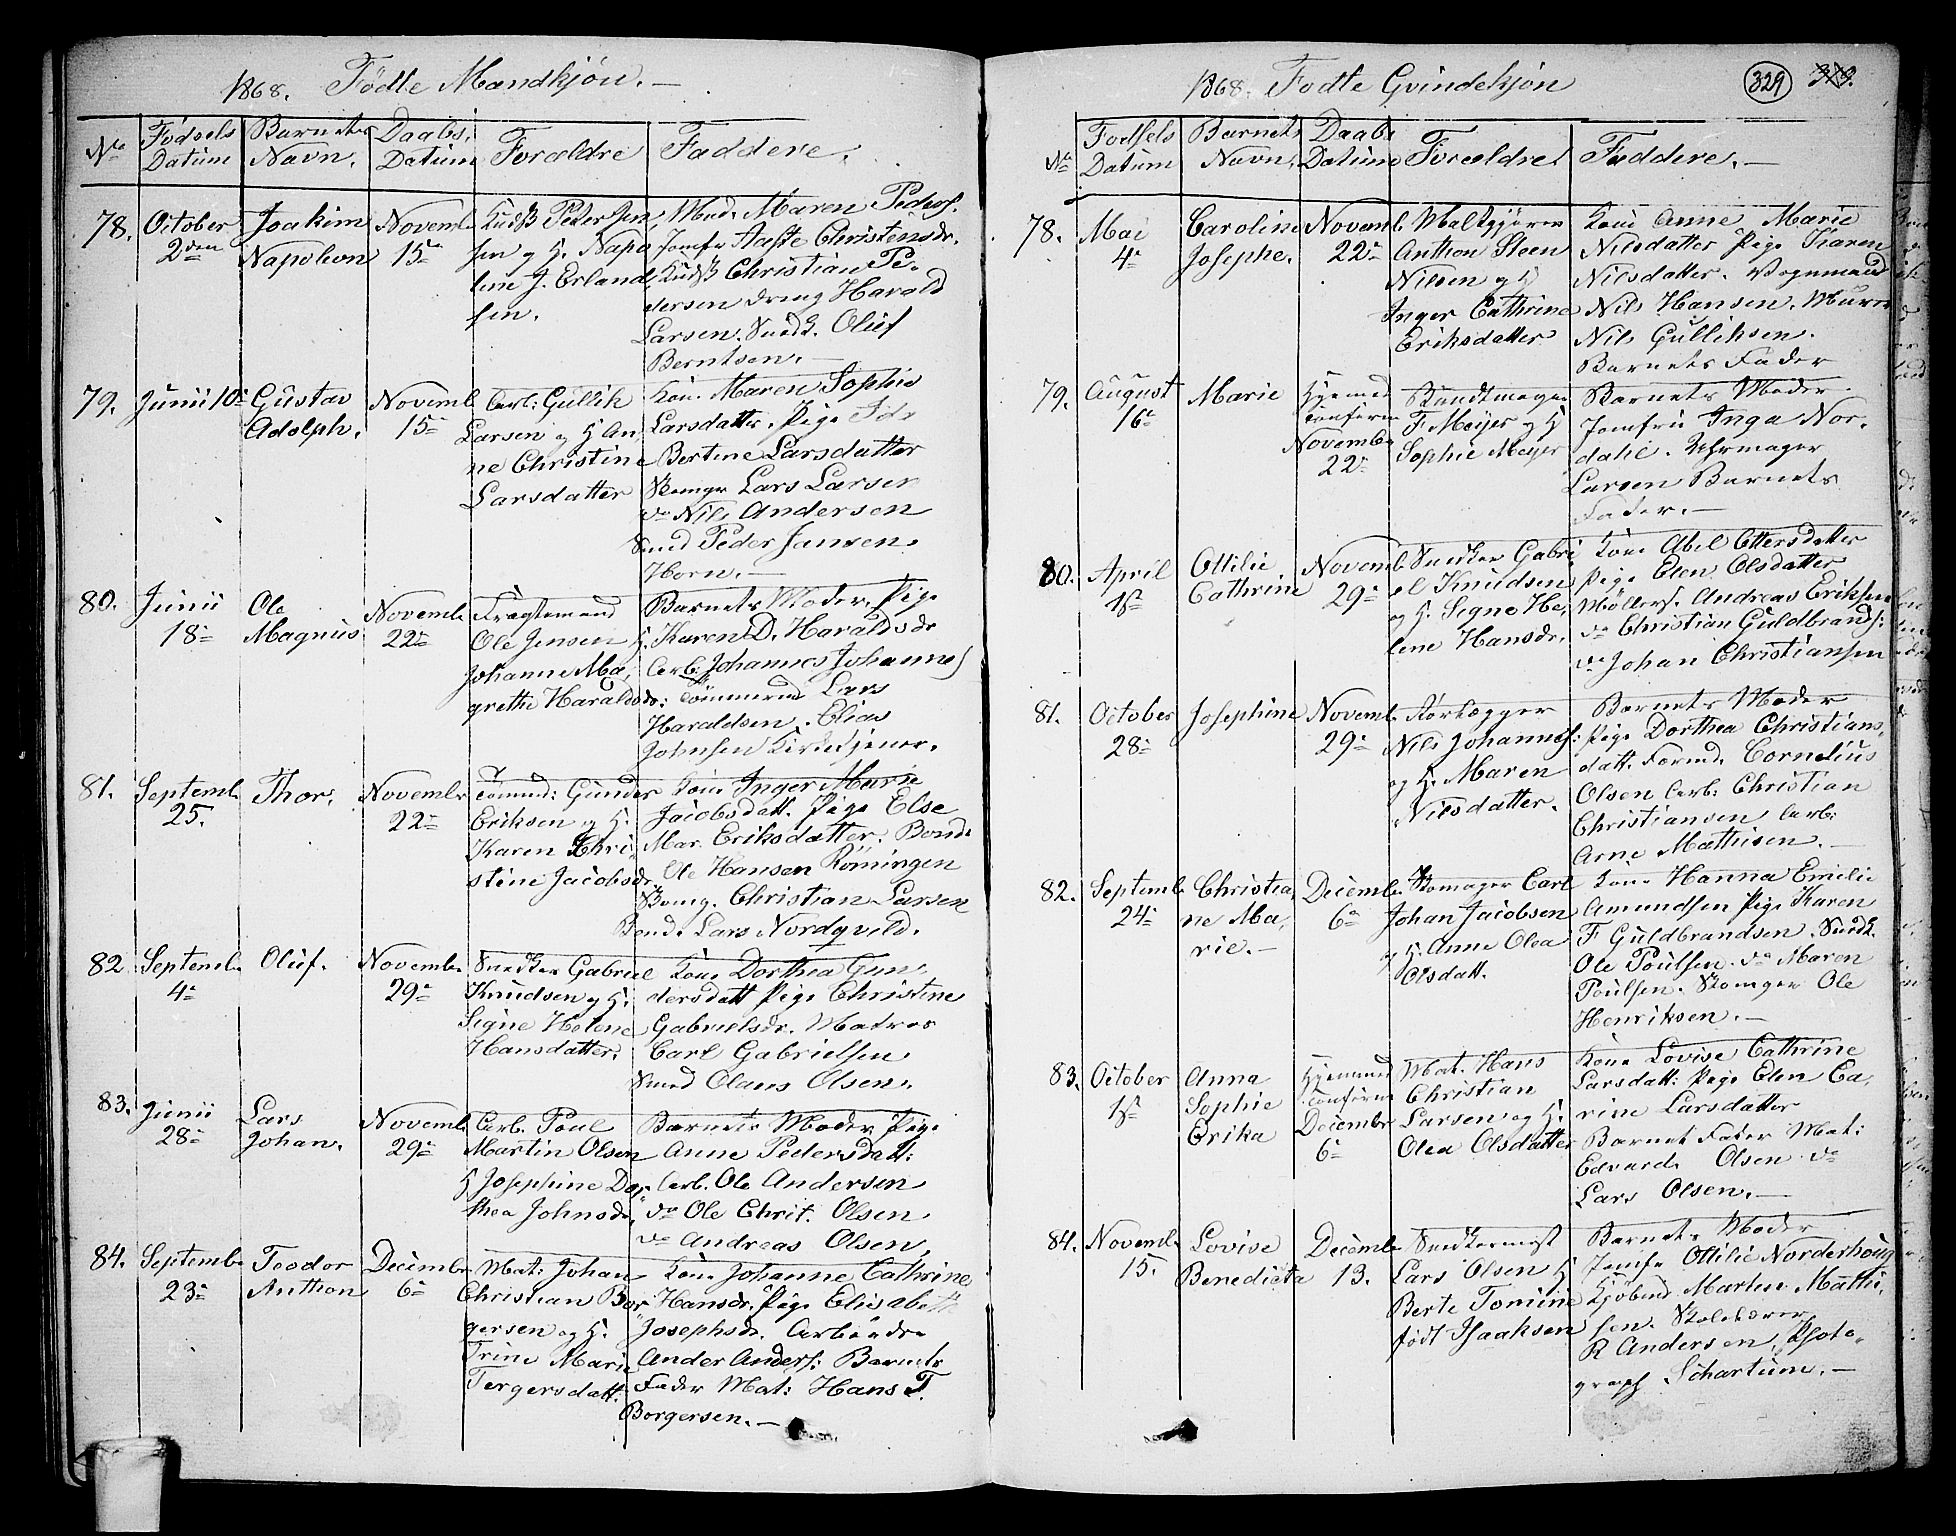 1868. Födte Mandkjön. —
No
Födsels Datum
Barnets Navn.
Daabs Datum
Forældre
Faddere.
78.
October 2den
Joakim Napoleon
Novemb. 15de
Kudsk Peder Jen
sen og H. Napo
line J. Erland
sen.
Mad. Maren Peders.
Jomfr Aaste Christensdr.
Kudsk Christian Pe-
dersen dreng Harald
Larsen. Snedk. Oluf
Berntsen. —
79.
Junii 10de
Gustav Adolph.
Novemb 15de
Arb: Gullik
Larsen og H An
ne Christine
Larsdatter
Kon. Maren Sophie
Larsdatter. Pige Ida
Bertine Larsdatter
Skomgr Lars Larsen
do Nils Andersen
Smed Peder Jansen
Horn. —
80.
Junii 18de
Ole Magnus
Novemb. 22de
Fragtemand
Ole Jensen H.
Johanne Ma,
grethe Haraldsdr:
Barnets Moder, Pige
Karen D. Haraldsdr
Arb. Johannes Johannes
Tömmermd Lars
Haraldsen. Elias
Johnsen Kirketjener.
81.
Septemb. 25.
Thor.
Novembr 22de
Tömmd: Gunder
Eriksen og H.
Karen Chri
stine Jacobsdr.
Kone Inger Marie
Jacobsdatt. Pige Else
Mar. Eriksdatter. Bond.
Ole Hansen Röningen
Skomg. Christian Larsen
Bond. Lars Nordqveld.
82
Septemb. 4de
Oluf.
Novembr 29de
Snedker Gabriel
Knudsen og H.
Signe Helene
Hansdatter.
Kone Dorthea Gun,
dersdatt Pige Christine
Gabrielsdr. Matros
Carl Gabrielsen
Smed Olaus Olsen.
83.
Junii 28de
Lars Johan.
Novemb. 29de
Arb. Poul
Martin Olsen
H Josephine Dor,
thea Johnsdr.
Barnets Moder, Pige
Anne Pedersdatt:
Arb. Ole Andersen
do Ole Christ. Olsen
do Andreas Olsen.
84.
Septembr 23de
Teodor Anthon
Decembr 6de
Mat: Johan
Christian Bor,
gersen og H.
Trine Marie
Tergersdatt.
Kone Johanne Cathrine
Hansdr. Pige Elisabeth
Josephsdr. Arbeider
Ander Anders: Barnets
Fader Mat: Hans T.
Borgersen. —
1868. Fodte Qvindekjön
329
319.
No
Fodsels Datum
Barnets Navn.
Daabs Datum
Forældre
Faddere. —
78.
Mai 4de
Caroline Josephe.
Novemb. 22de
Maltgjörer
Anthon Steen
Nilsen og H
Inger Cathrine
Eriksdatter
Kone Anne Marie
Nilsdatter Pige Karen
Nilsdatter. Vognmand
Nils Hansen. Murer
Nils Gulliksen.
Barnets Fader
79.
August 16de
Marie
Hjemmed Conferm Novembr 22de
Bundtmager
F. Meijer og H
Sophie Meyer
Barnets Moder
Jomfru Inga Nor-
dahl. Uhrmager
Larsen Barnets
Fader. —
80.
April 1ste
Ottilie Cathrine
Novemb 29de
Snedker Gabri
el Knudsen
og H. Signe He,
lene Hansdr.
Kone Abel Ottersdatter
Pige Elen Olsdatter
Möllers. Andreas Eriksen
do Christian Guldbrands:
do Johan Christiansen
81.
October 28de
Josephine
Novemb. 29de
Rörlægger
Nils Johannes:
og H. Maren
Nilsdatter.
Barnets Moder
Pige Dorthea Christians,
datt. Formd. Cornelius
Olsen Arb: Christian
Christiansen Arb:
Arne Mathisen. —
82.
Septemb. 24de
Christia, ne Ma, rie. —
Decembr 6de
Skomager Carl
Johan Jacobsen
og H. Anne Olea
Olsdatt.
Kone Hanna Emilie
Amundsen Pige Karen
F. Guldbrandsen. Snedk.
Ole Poulsen. do Maren
Poulsen. Skomger Ole
Henriksen. —
83.
October 1ste
Anna Sophie Erika
Hjemmed Conferm Decembr 6de
Mat. Hans
Christian
Larsen og H.
Olea Olsdatter
Kone Lovise Cathrine
Larsdatt: Pige Elen Ca,
rine Larsdatter
Barnet Fader Mat:
Edvard Olsen do
Lars Olsen. —
84.
Novemb. 15.
Lovise Benedicta
Decembr 13.
Snedkermest
Lars Olsen H
Berte Tomine
födt Isaaksen
Barnets Moder
Jomfr Ottilie Norderhoug
Kjöbmd Marten Mathi,
sen. Skolelærer
R Andersen, Photo-
graph Schartum. —